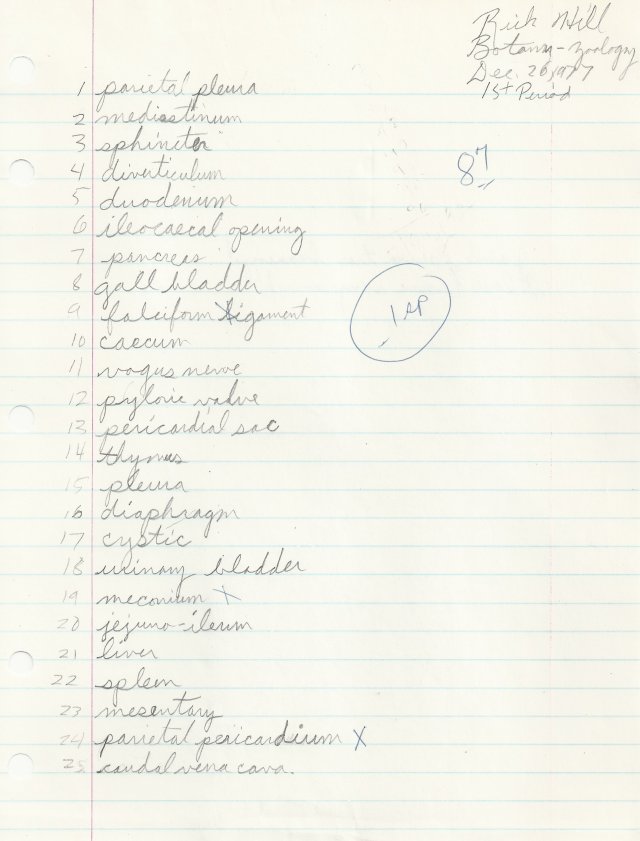 Rick Hill
Botany-Zoology
Dec. 20, 1977
1st Period
87
-1 sp
1 parietal pleura
2 mediastinum
3 sphincter
4 diverticulum
5 duodenum
6 ileocaecal opening
7 pancreas
8 gall bladder
9 falciform ligament
10 caecum
11 vagus nerve
12 pyloric valve
13 pericardial sac
14 thymus
15 pleura
16 diaphragm
17 cystic
18 urinary bladder
19 meconium X
20 jejuno-ileum
21 liver
22 spleen
23 mesentary
24 parietal pericardium X
25 caudal vena cava.